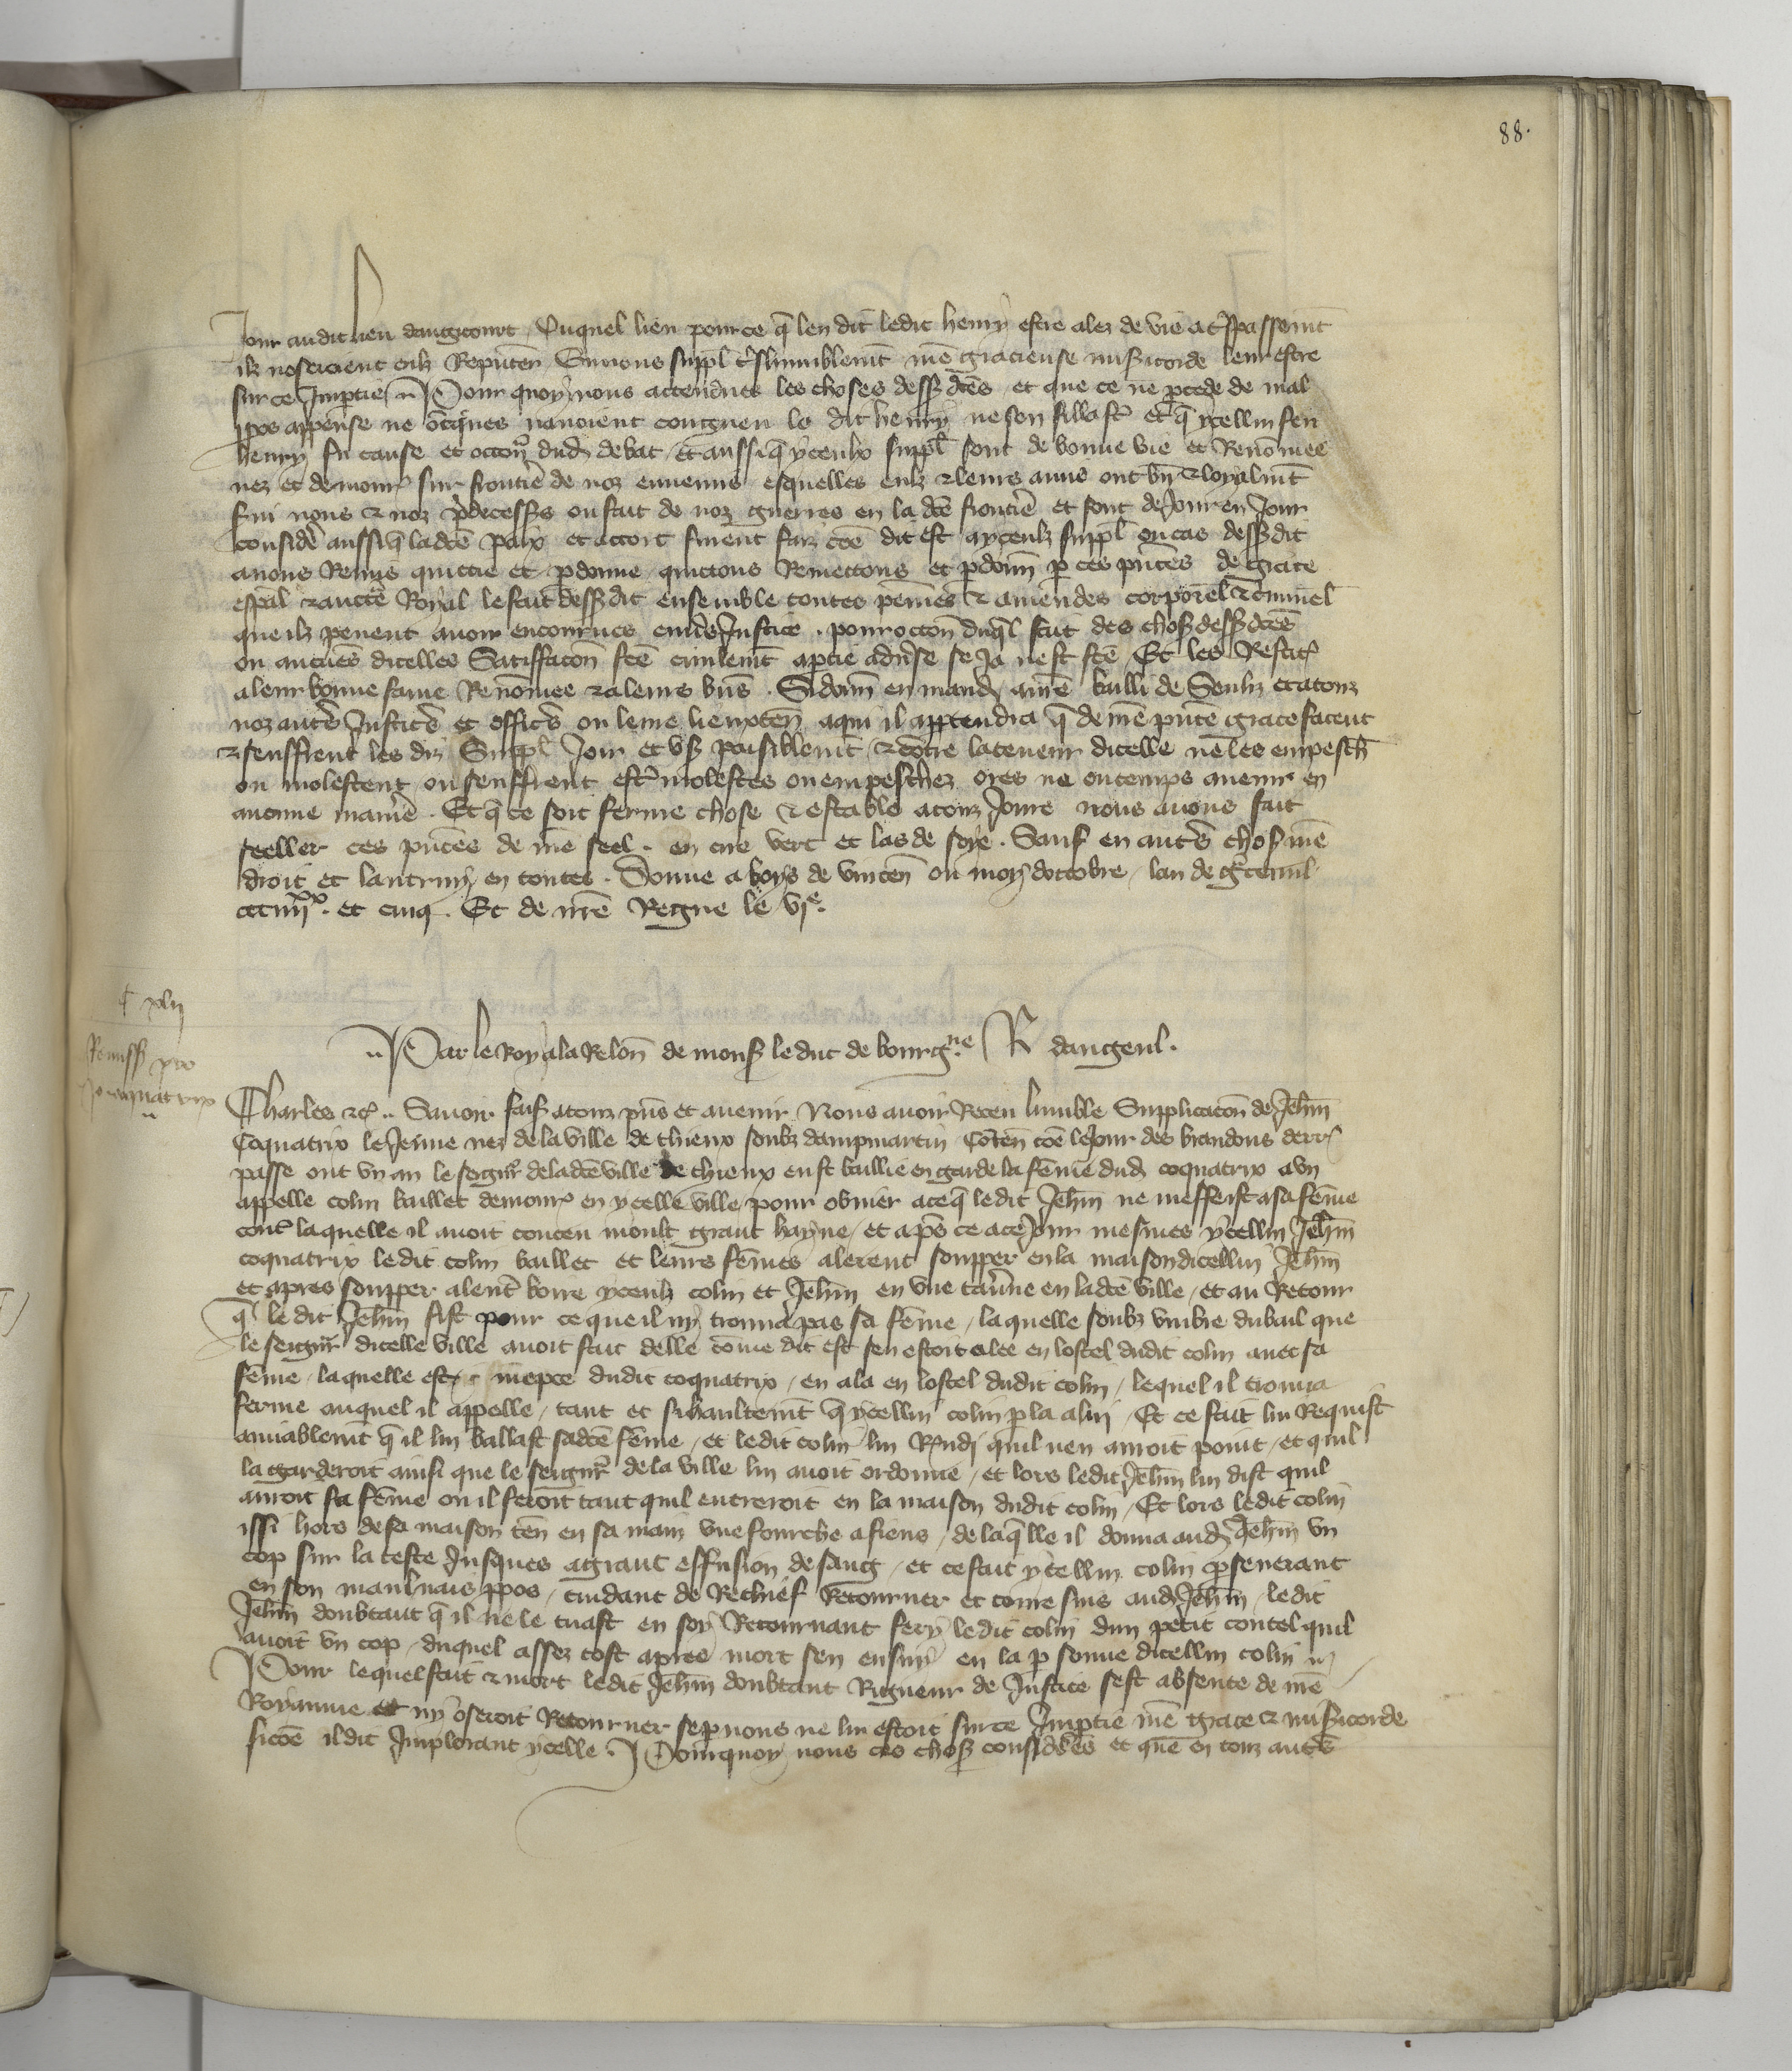 88.
Jour audit lieu daugicourt / Duquel lieu pour ce q̄ len dit ledit henry estre alez de vie a t̾spassemt̄
ilz noseroient eulz Repairer Si nous suppl̄ t̾shumblemt̄ nr̄e gracieuse mis̾icorde leur estre
sur ce Impartie Pour quoy nous attendues les choses dess9 dc̄es et que ce ne procede de mal
ppos appense ne oncques nauoient congneu le dit henry ne son fillast̾ et q̄ ycellui feu
henry fu cause et occon̄ dud debat / Et aussi q̄ yceulx suppl̄ sont de bonne vie et Renōmee
nez et demour̾ sur frontie̾ de noz ennemis esquelles eulz & leurs amis ont bn̄ & loyalmt̄
s̾ui nous & noz p̾decess̾s ou fait de noz guerres en la dc̄e frontie̾ et sont de Jour en Jour
considē aussi q̄ ladc̄e paix et accort furent faiz cōe dit est a yceulz suppl̄ ou cas dess9dit
auons Remis quictie et p̱donne quictons Remectons et p̱donn̄ p̱ ces pn̄tes de grace
esp̄al & auctē Royal le fait dess9dit ensemble toutes peines & amendes corporel̄ & c̾minel̄
que ilz peuent auoir encourues enuers Justice . pour occon̄ duql̄ fait des chos9 dess9dc̄es
ou aucūes dicelles Satiffacōn fc̄e ciuilemt̄ a partie aduerse se Ja nest fc̄e / Et les Restit̾
a leur bonne fame Renōmee & a leurs biēs . Si donn̄ en mand̾ a nr̄e bailli de Senliz et a touz
noz autr̄s Justic̾s et offic̾s ou leurs lieuxten̄ a qui il app̱tendra q̄ de nr̄e pn̄te grace facent
& seuffrent les diz Suppl̄ Joir et vs̾ paisiblemt̄ / & cōtre la teneur dicelle ne les empesch̄
ou molestent ou seuffrent est̾ molestes ou empeschez ores ne ou temps auenir en
aucune manie̾ . Et q̄ ce soit ferme chose & estable a touz Jours nous auons fait
seeller ces pn̄tes de nr̄e seel . en cire vert et las de soye . Sauf en autr̄s chos9 nr̄e
droit et lautruy en toutes . Donne a boys de vincen̄ ou moys doctobre / lan de gce mil
ccciiijxx . et cinq . Et de nr̄e Regne le vje .
C xlij
Remiss9 pro
Jo coquatrix
Par le Roy a la Relon̄ de mons9 le duc de bourgne R daugeul .
Charles &c̾ .. Sauoir fais9 a touz pn̄s et auenir / Nous auoir Receu lumble Supplicacōn de Jeh̄n
Coquatrix le Jeune nez de la ville de thieux soubz dampmartin Cōten̄ cōe le Jour des brandons derr̾
passe ont vn an le seign̾r de ladc̄e ville de thieux eust baillie en garde la fēme dud̾ coquatrix a vn
appelle colin baillet demour̾ en ycelle ville / pour obuier a ce q̄ ledit Jeh̄n ne meffeist a sa fēme
cont̾ laquelle il auoit conceu moult grant hayne / et ap̾s ce a ce Jour mesmes ycellui Jeh̄n
coquatrix ledit colin baillet et leurs fēmes alerent soupper en la maison dicellui Jeh̄n
et apres soupper alerēt boire yceulz colin et Jeh̄n en vne tau̾ne en ladc̄e ville / et au Retour
q̄ le dit Jeh̄n fist pour ce que il ny trouua pas sa fēme / laquelle soubz vmbre du bail que
le seign̾r dicelle ville auoit fait delle cōme dit est sen estoit alee en lostel dudit colin auec sa
fēme / laquelle est niepce dudit coquatrix / en ala en lostel dudit colin / lequel il trouua
ferme auquel il appella / tant et si haultemt̄ q̄ ycellui colin p̱la a lui / Et ce fait lui Requist
amiablemt̄ q̄ il lui ballast sadc̄e fēme / et ledit colin lui Rn̄di quil nen auroit point / et quil
la garderoit ainsi que le seign̾r de la ville lui auoit ordonne / et lors ledit Jeh̄n lui dist quil
auroit sa fēme ou il feroit tant quil entreroit en la maison dudit colin / Et lors ledit colin
issi hors de sa maison ten̄ en sa main vne fourche a fiens / de laq̄lle il donna aud̾ Jeh̄n vn
cop sur la teste Jusques a grant effusion de sang / et ce fait ycellui colin p̱seuerant
en son mauluais ppos / cuidant de Rechief Retourner et courre sus aud̾ Jeh̄n / ledit
Jeh̄n doubtant q̄ il ne le tuast en soy Retournant fery ledit colin dun petit coutel quil
auoit vn cop / duquel assez tost apres mort sen ensuy en la p̱sonne dicellui colin
Pour lequel fait & mort ledit Jeh̄n doubtant Rigueur de Justice sest absente de nr̄e
Royaume et ny oseroit Retourner se p̱ nous ne lui estoit sur ce Imp̱tie nr̄e grace & mis̾icorde
sicōe il dit Implorant ycelle . Pourquoy nous ces chos9 consid̾ees et que en touz autr̄s